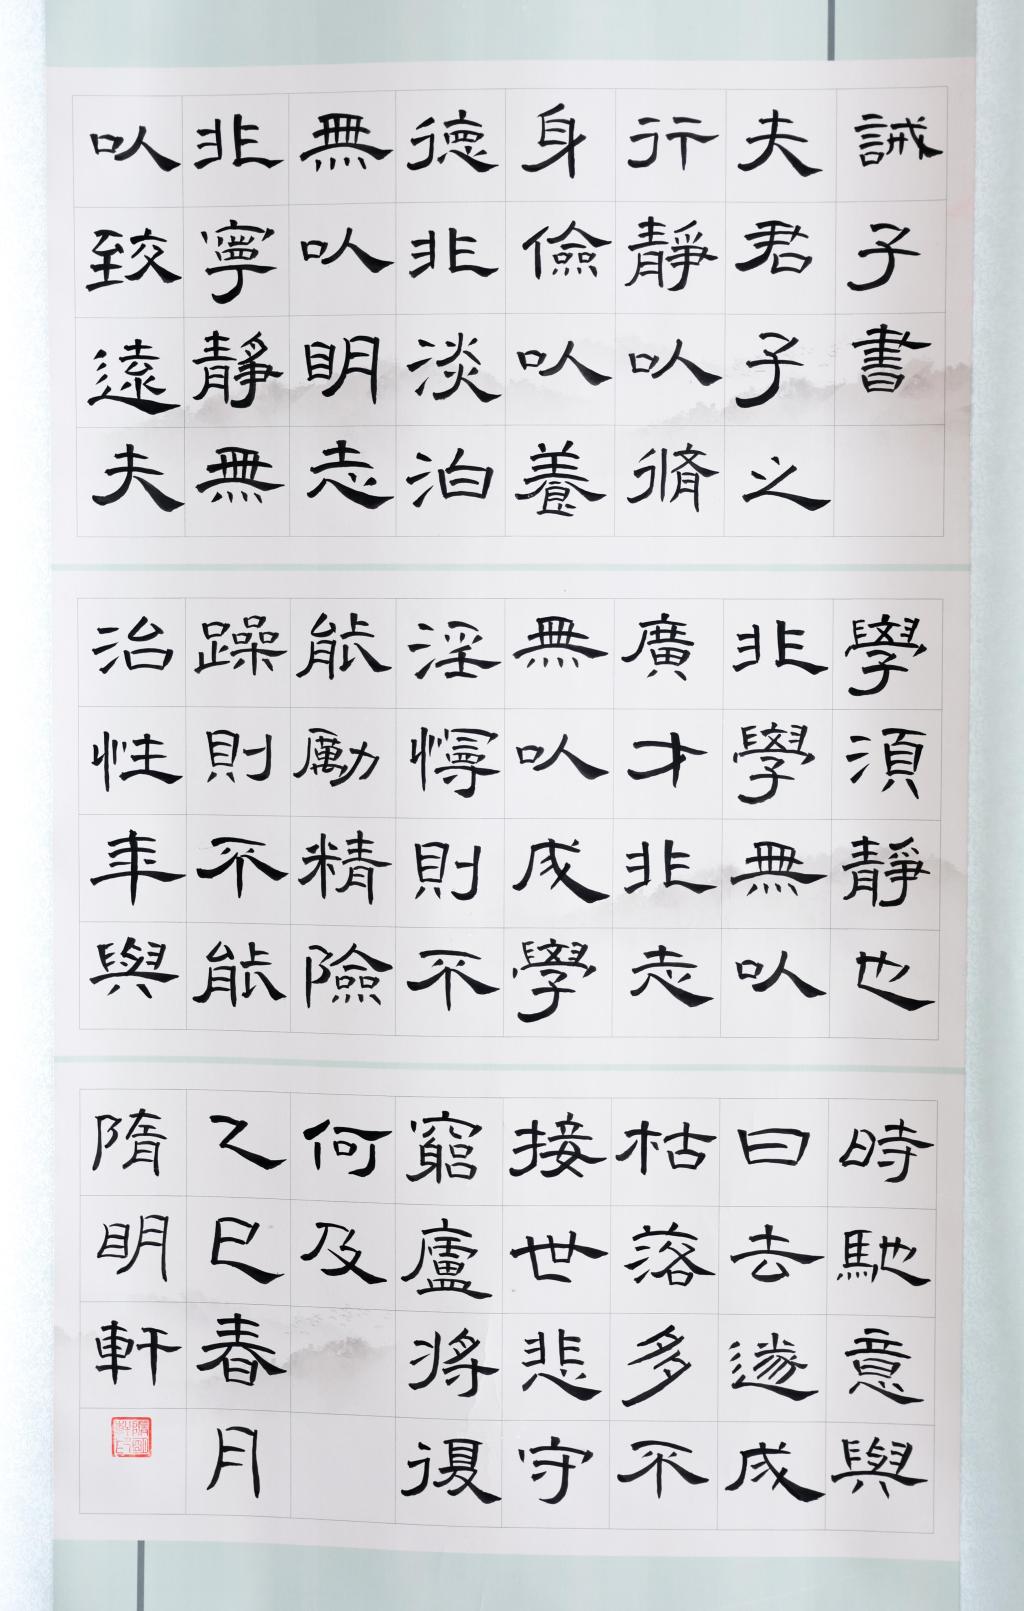 誡子書
夫君子之
行靜以脩
身儉以養
德非淡泊
無以明志
非寧靜無
以致遠夫
學須靜也
非學無以
廣才非志
無以成學
淫慢則不
能勵精險
躁則不能
治性年與
時馳意與
日去遂成
枯落多不
接世悲守
窮廬將復
何及
乙巳春月
隋明軒